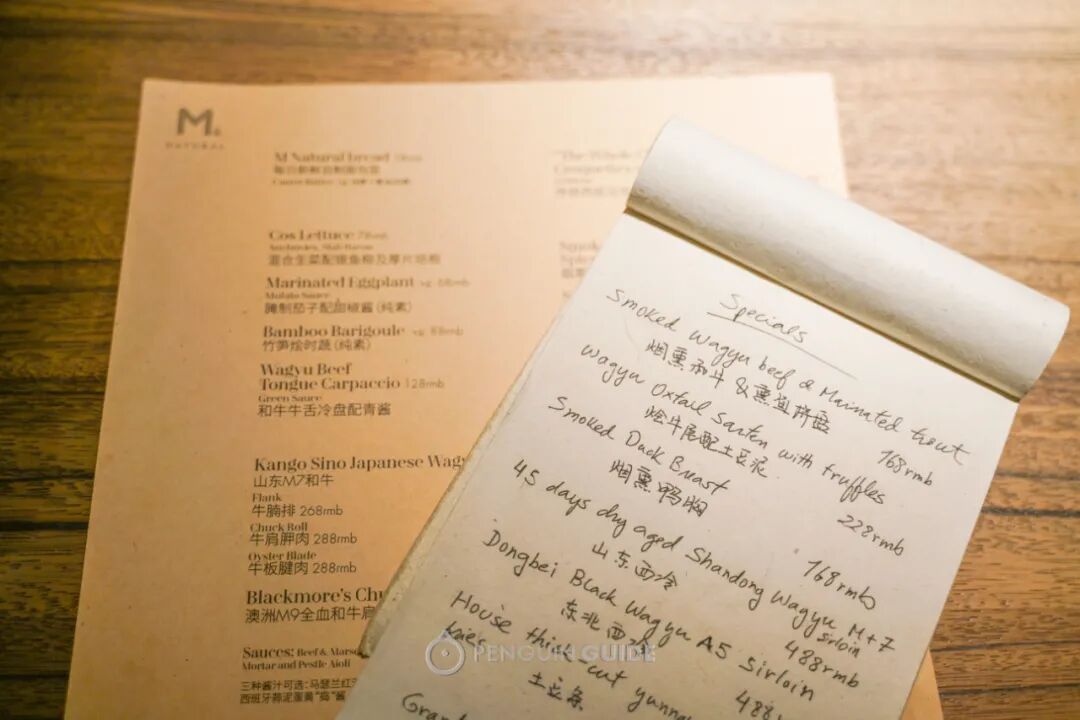 M.
NATURAL
M Natural bread
Cos Lettuce
混合生菜配鳀鱼柳及厚片培根
Marinated Eggplant vg 68rmb
Mulato Sauce
腌制茄子配甜椒酱(纯素)
Bamboo Barigoule vg 88rmb
竹笋烩时蔬(纯素)
Wagyu Beef
Tongue Carpaccio 128rmb
Green Sauce
和牛牛舌冷盘配青酱
Kango Sino Japanese Wag
山东M7和牛
Flank
牛腩排 268rmb
Chuck Roll
牛肩胛肉 288rmb
Oyster Blade
牛板腱肉 288rmb
Blackmore's Chu
澳洲M9全血和牛肩
Sauces: Beef & Marsa
Mortar and Pestle Aioli
三种酱汁可选:马瑟兰红
西班牙蒜泥蛋黄"捣"酱
"The Whole
Croquettes
Smok
Specials
Smoked Wagyu beef & Marinated trout
烟熏和牛 & 熏渔拼盘 168rmb
Wagyu Oxtail Sarten with truffles
烩牛尾配土豆泥 228rmb
Smoked Duck Breast
烟熏鸭胸 168rmb
45 days dry aged Shandong Wagyu M+7
sirloin
山东西冷 488rmb
Dongbei Black Wagyu A5 sirloin
东北西冷 488
House thick-cut yunna
fries
土豆条
Gran
PENGUIN GUIDE